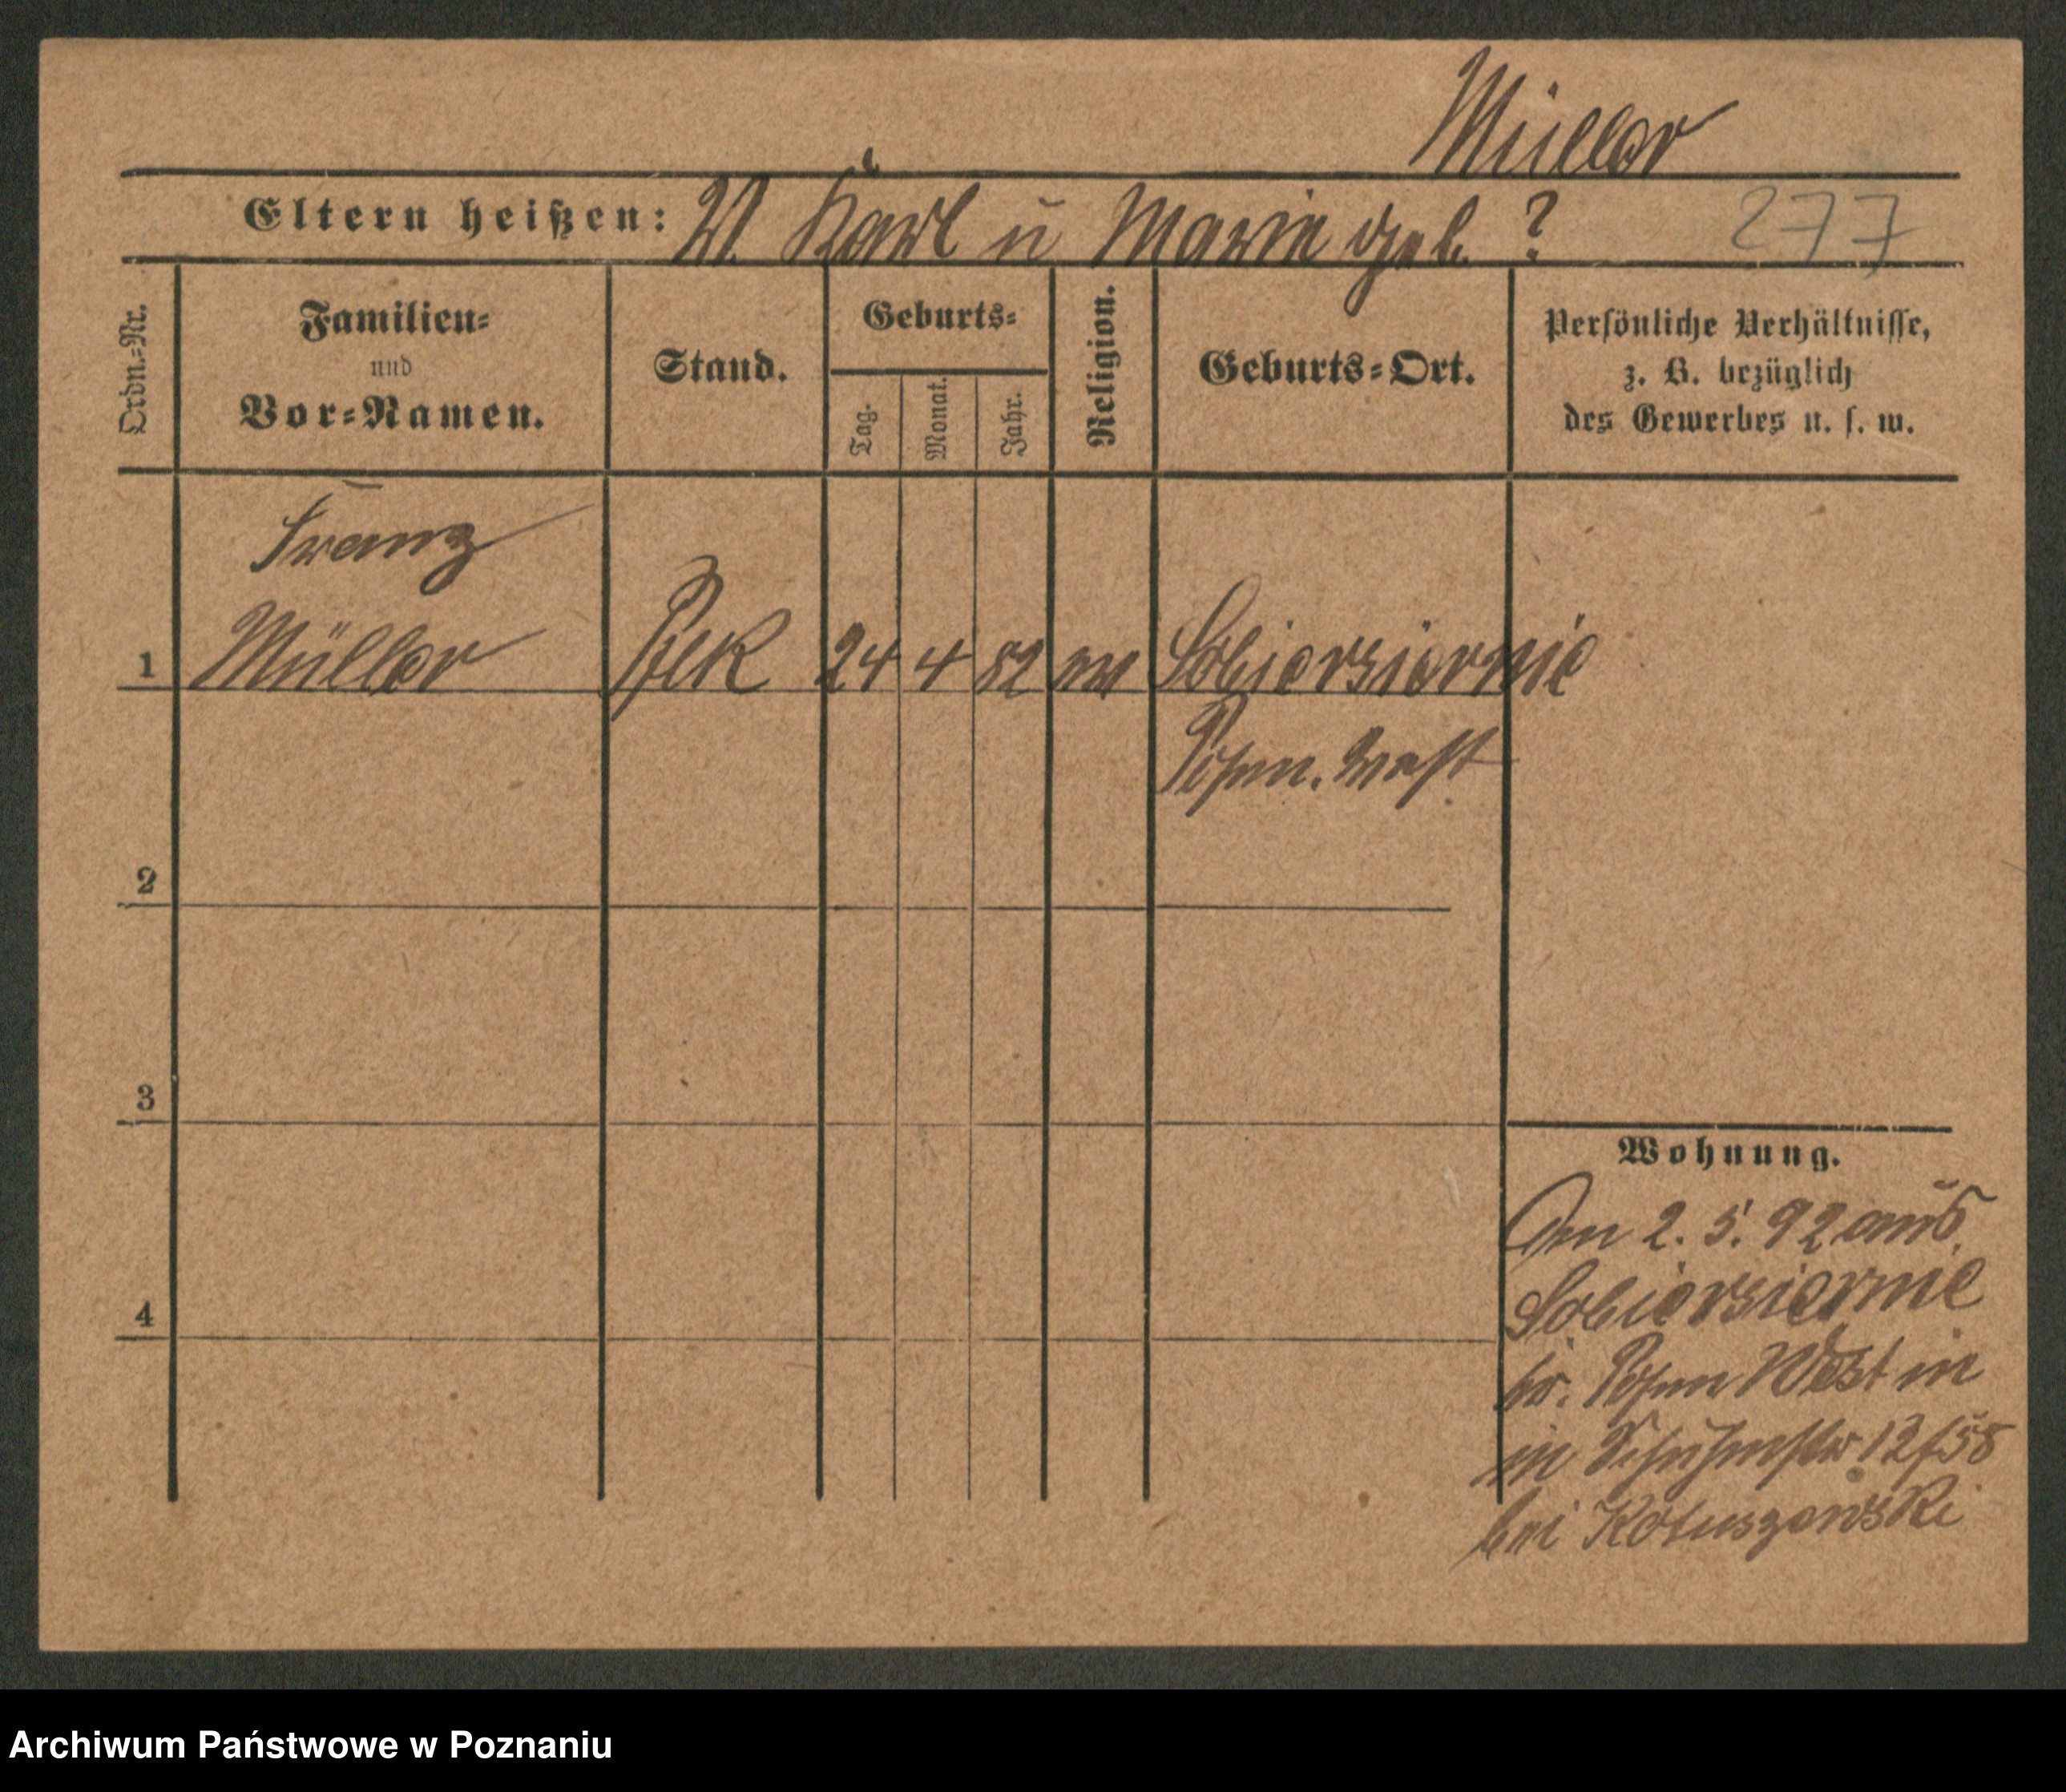 Müller
Eltern heißen: Karl u Marie geb. ?
277
Ordn.-Nr.
Familien-
und
Vor-Namen.
Stand.
Geburts-
Tag.
Monat.
Jahr.
Religion.
Geburts-Ort.
Persönliche Verhältnisse,
z. B. bezüglich
des Gewerbes u. s. w.
Franz
1 Müller 24 4 82 Sobiersiernie
Posen. West
2
3
4
Wohnung.
Am 2. 5. 92 aus
Sobiersiernie
Kr. Posen West in
in Schuhmstr 12/
bei Kotuszewski
Archiwum Państwowe w Poznaniu